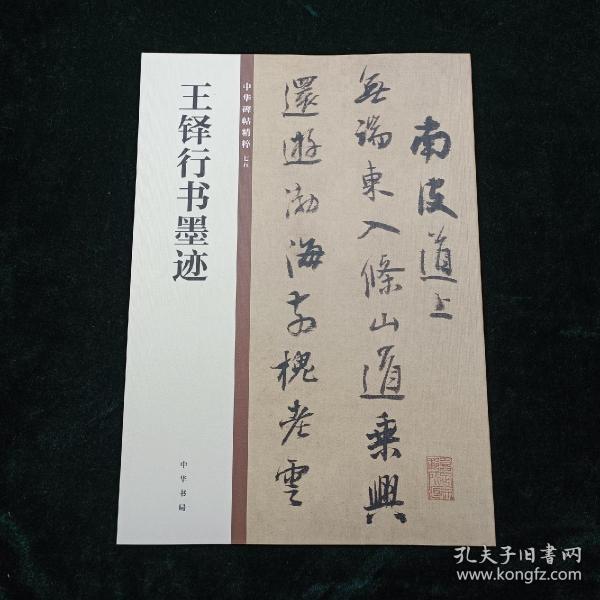 王铎行书墨迹
中华碑帖精粹
中华书局
南皮道上
无端東入條山道乘興
還遊渤海末槐老雲
孔夫子旧书网
www.kongfz.com